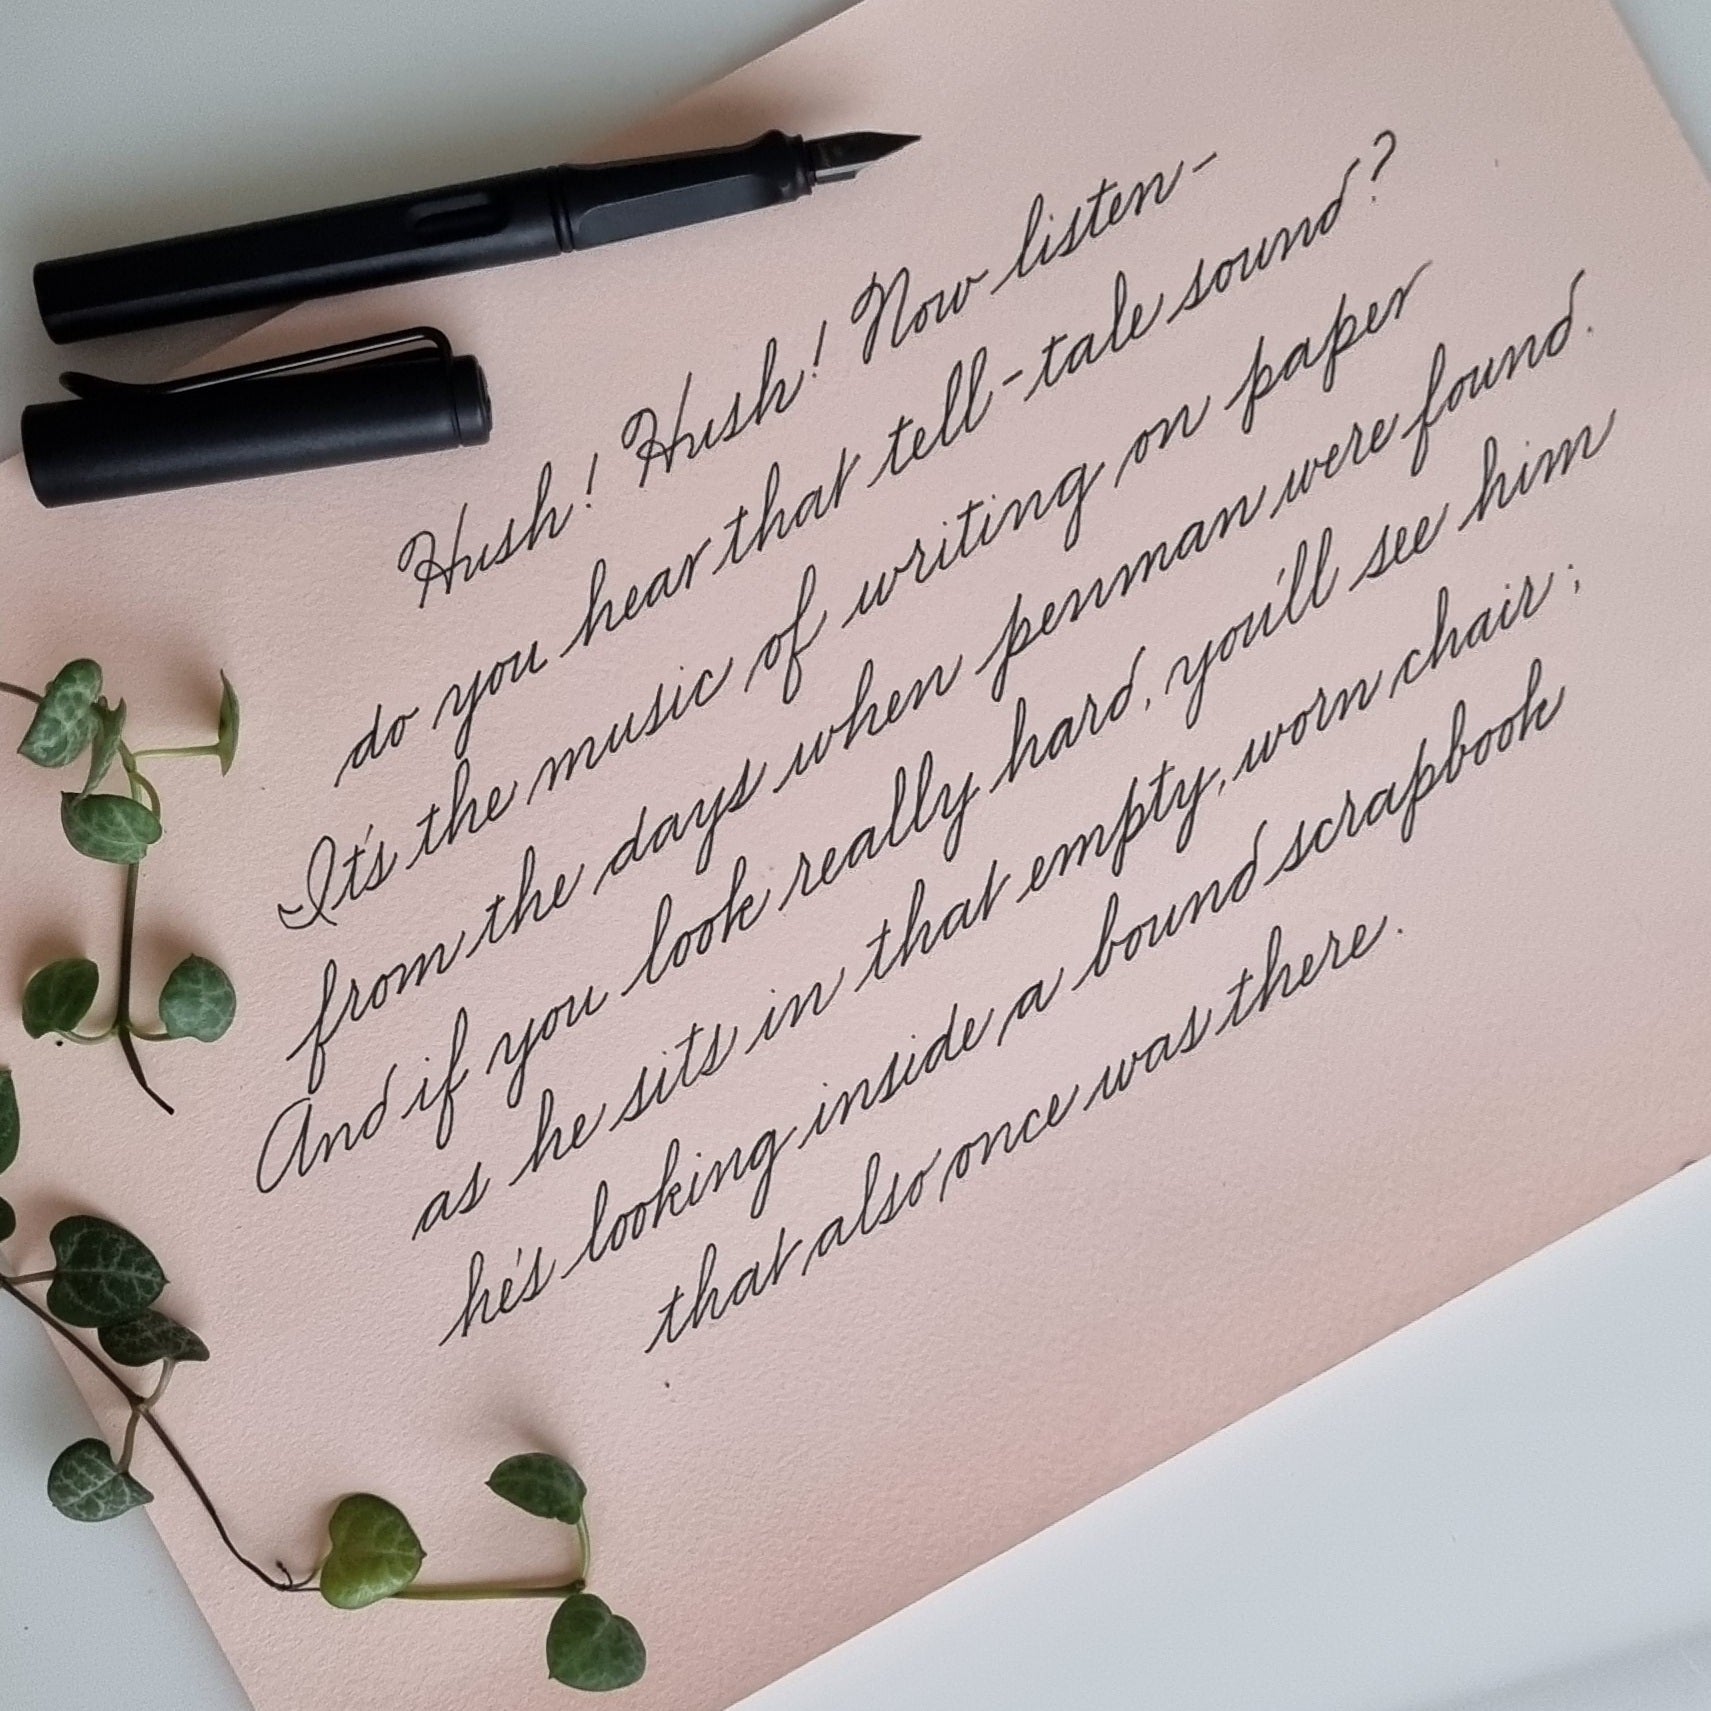 Hush! Hush! Now listen-
do you hear that tell-tale sound?
It's the music of writing on paper
from the days when penman were found.
And if you look really hard, you'll see him
as he sits in that empty, worn chair;
he's looking inside a bound scrapbook
that also once was there.